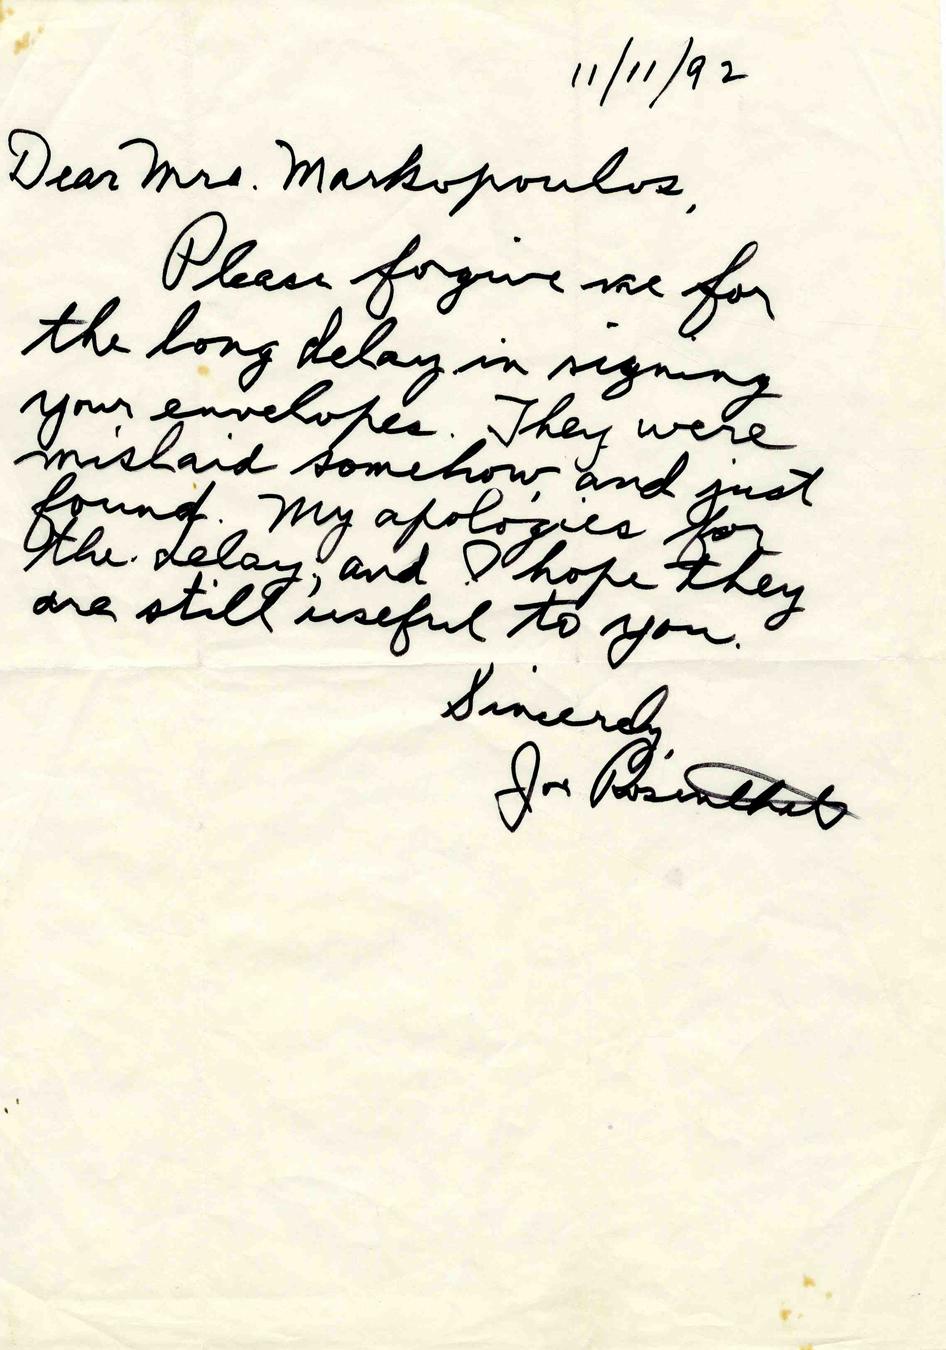 11/11/92
Dear Mrs. Markopoulos,
Please forgive me for
the long delay in signing
your envelopes. They were
mislaid somehow and just
found. My apologies for
the delay, and I hope they
are still useful to you.
Sincerely,
Joe Rosenthal